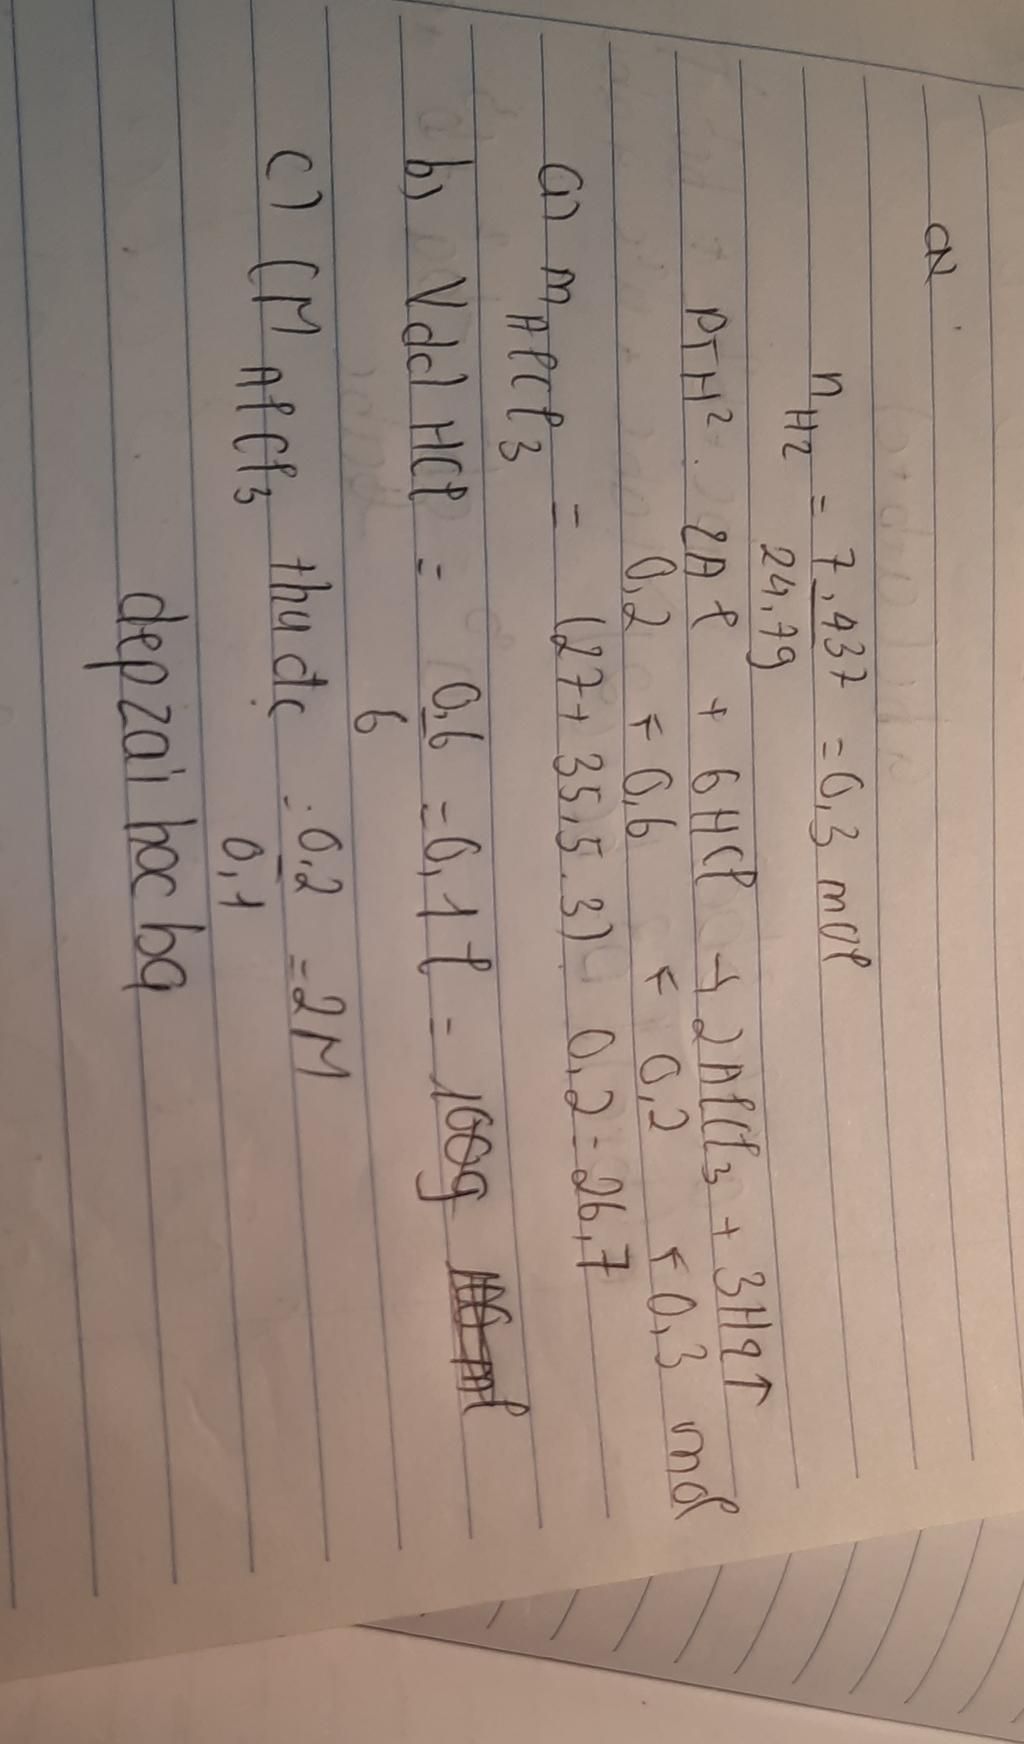 CN
n H2 = 7,437 = 0,3 mol
24,79
PTH²: 2Al + 6HCl → 2AlCl3 + 3H2↑
0,2 ← 0,6 ← 0,2 ← 0,3 mol
a) m AlCl3 = (27+35,5.3) 0,2 = 26,7
b) Vdd HCl = 0,6 = 0,1 l = 100g
6
c) CM AlCl3 thu dc : 0,2 = 2M
0,1
depzai hoc ba